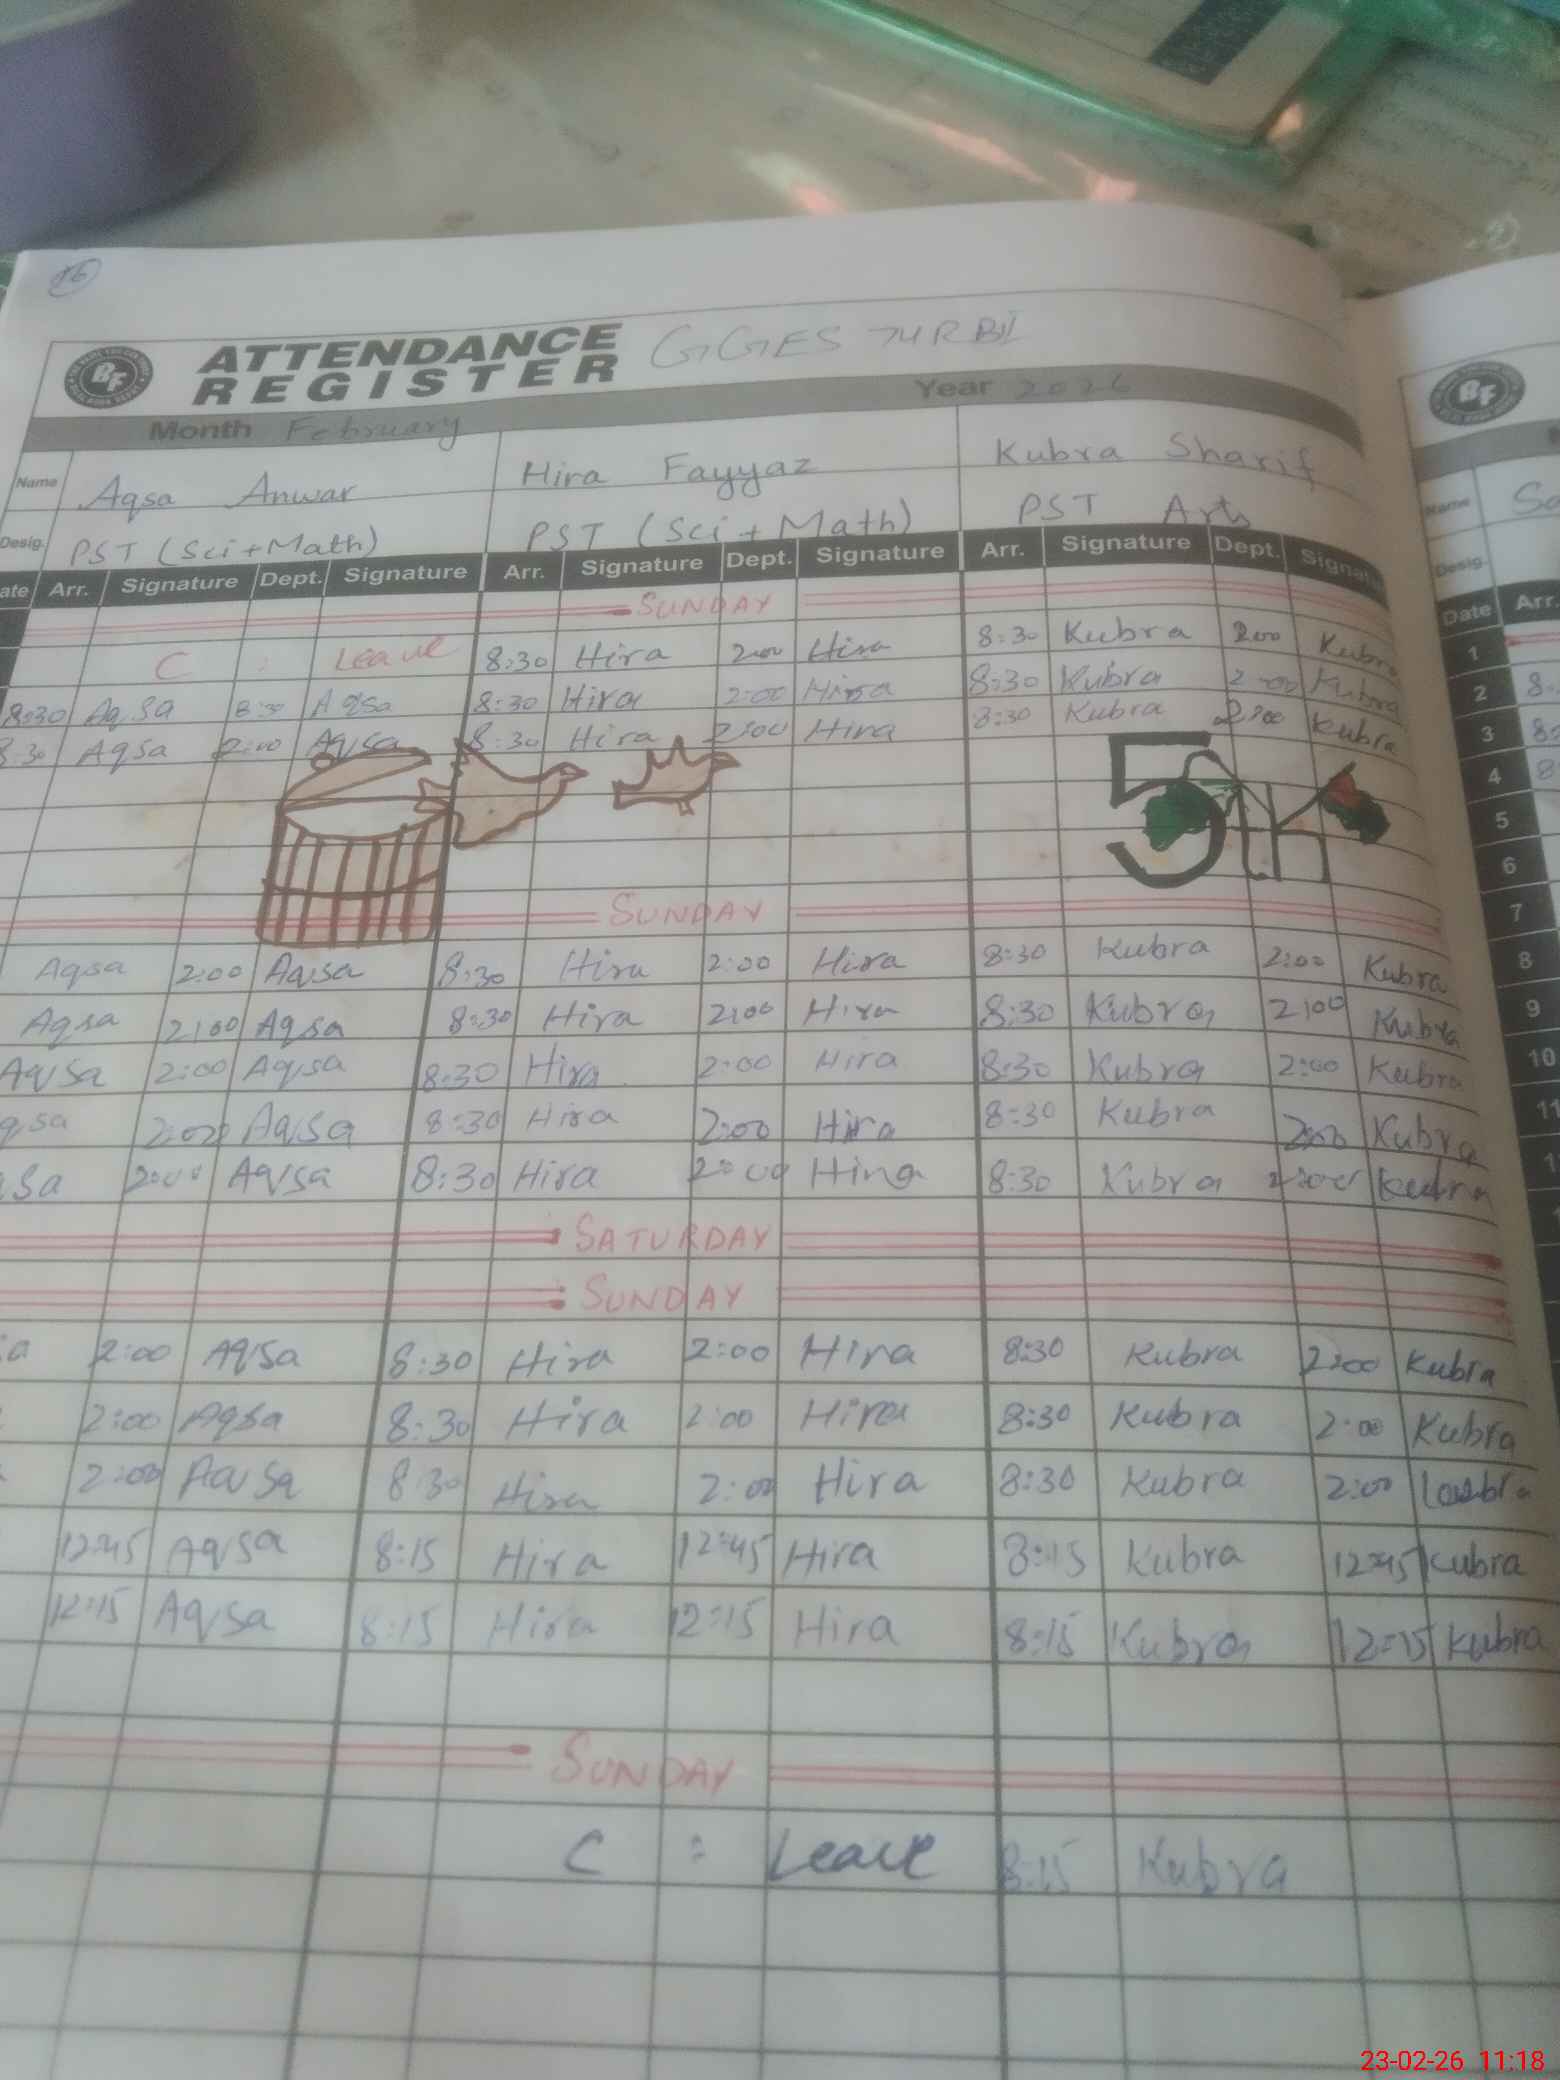 16
BF
ATTENDANCE REGISTER GGES TURBI
Month February Year 2026
Name Aqsa Anwar Hira Fayyaz Kubra Sharif
Desig. PST (Sci+Math) PST (Sci+Math) PST Arts
Arr. Signature Dept. Signature Arr. Signature Dept. Signature Arr. Signature Dept. Signature
SUNDAY
C : Leave 8:30 Hira 2:00 Hira 8:30 Kubra 2:00 Kubra
8:30 Aqsa Aqsa 8:30 Hira 2:00 Hira 8:30 Kubra 2:00 Kubra
8:30 Aqsa 2:00 Aqsa 8:30 Hira 2:00 Hira 8:30 Kubra 2:00 Kubra
5th
SUNDAY
Aqsa 2:00 Aqsa 8:30 Hira 2:00 Hira 8:30 Kubra 2:00 Kubra
Aqsa 2:00 Aqsa 8:30 Hira 2:00 Hira 8:30 Kubra 2:00 Kubra
Aqsa 2:00 Aqsa 8:30 Hira 2:00 Hira 8:30 Kubra 2:00 Kubra
qsa 2:00 Aqsa 8:30 Hira 2:00 Hira 8:30 Kubra 2:00 Kubra
sa 2:00 Aqsa 8:30 Hira 2:00 Hira 8:30 Kubra 2:00 Kubra
SATURDAY
SUNDAY
a 2:00 Aqsa 8:30 Hira 2:00 Hira 8:30 Kubra 2:00 Kubra
2:00 Aqsa 8:30 Hira 2:00 Hira 8:30 Kubra 2:00 Kubra
2:00 Aqsa 8:30 Hira 2:00 Hira 8:30 Kubra 2:00 Kubra
12:45 Aqsa 8:15 Hira 12:45 Hira 8:15 Kubra 12:45 Kubra
12:15 Aqsa 8:15 Hira 12:15 Hira 8:15 Kubra 12:15 Kubra
SUNDAY
C : Leave 8:15 Kubra
BF
Name
Desig.
Date Arr.
1
2
3
4
5
6
7
8
9
10
11
23-02-26 11:18